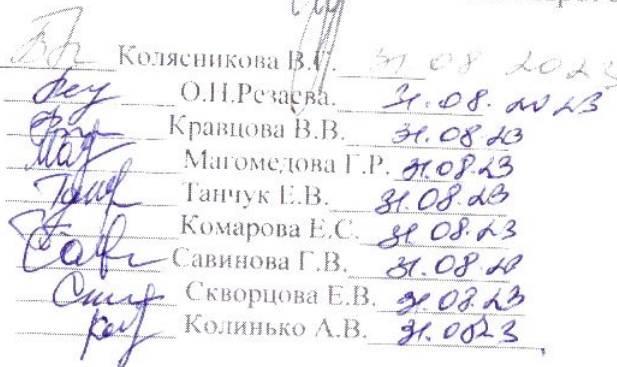 Колясникова В.С. 31 08 2023
О.Н.Резаева. 31.08.2023
Кравцова В.В. 31.08.23
Магомедова Г.Р. 31.08.23
Танчук Е.В. 31.08.23
Комарова Е.С. 31 08.23
Савинова Г.В. 31.08.23
Скворцова Е.В. 31 08.23
Колинько А.В. 31.0823